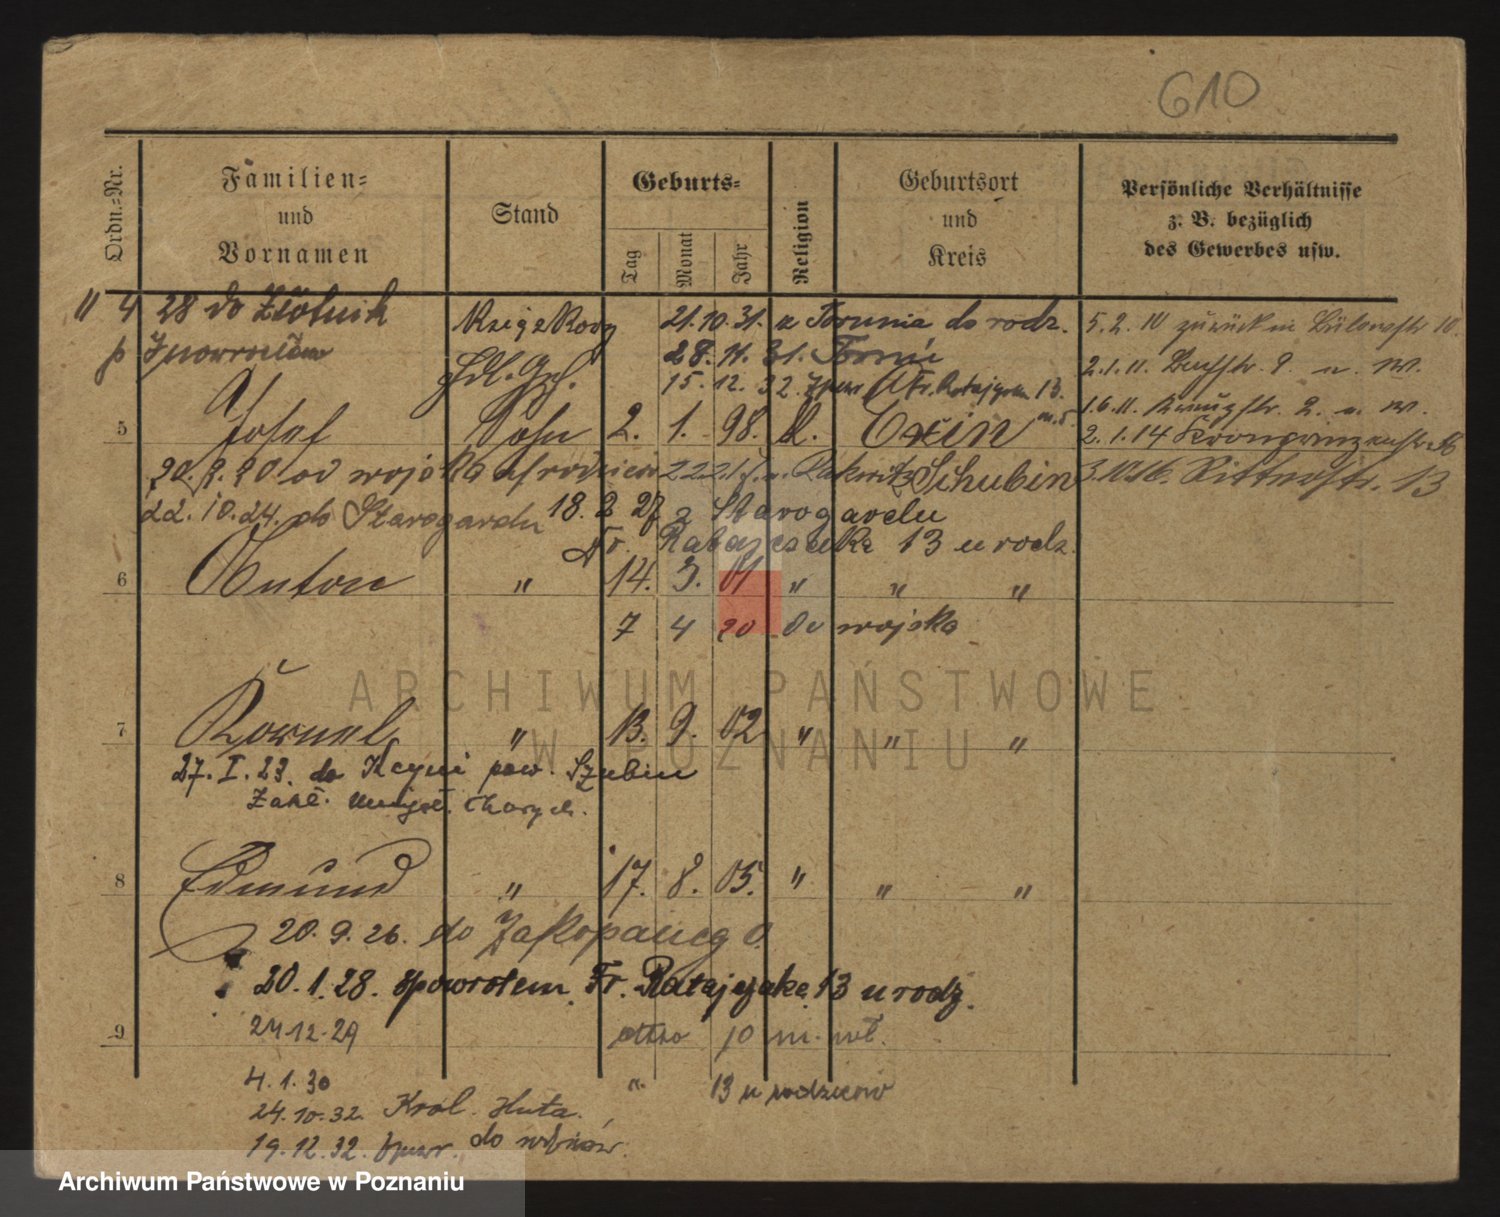 610
Ordn.-Nr.
Familien-
und
Vornamen
Stand
Geburts-
Tag
Monat
Jahr
Religion
Geburtsort
und
Kreis
Persönliche Verhältnisse
z. B. bezüglich
des Gewerbes usw.
11 4 28 do Złotnik
Księgkowy 21.10.31. z Torunia do rodz.
5.2.10 zurück in Bülowstr 10.
28. 11. 31. Toruń
Hdl. Gh.
15. 12. 32. Fr. Ratajczaka 13.
2.1.11. 2. u. W.
1.6.11. 2. u. W.
5 Josef Sohn 2. 1. 98. k. Exin
2.1.14 Kronprinzenstr.
20.8.20 od wojska u rodziców Rakwitz Schubin
Ritterstr. 13
22. 10. 24. do Starogardu 18. 2 27 z Starogardu
Fr. Ratajczaka 13 u rodz.
6 Anton " 14. 3. 01 " " "
7 4 20 do wojska
7 Kornel " 13. 9. 02 " " "
27. I. 23. do Kcyni pow. Szubin
Zakł. umysł. chorych.
8 Edmund " 17. 8. 05. " " "
20. 9. 26. do Zakopanego
20. 1. 28. spowrotem. Fr. Ratajczaka 13 u rodz.
9 24 12. 29 10 m. wł.
4. 1. 30 " 13 u rodziców
24. 10. 32. Król. Huta.
19. 12. 32.
ARCHIWUM PAŃSTWOWE
W POZNANIU
Archiwum Państwowe w Poznaniu